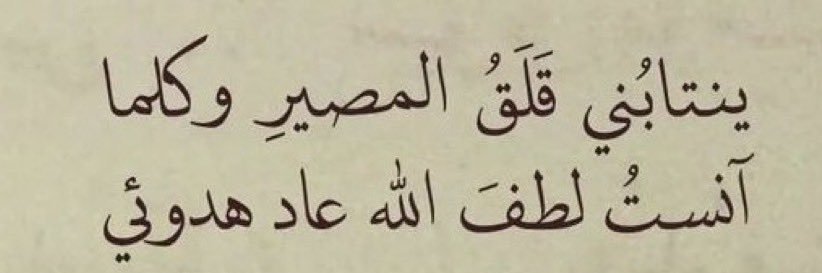 ينتابُني قَلَقُ المصيرِ وكلما
آنستُ لطفَ الله عاد هدوئي